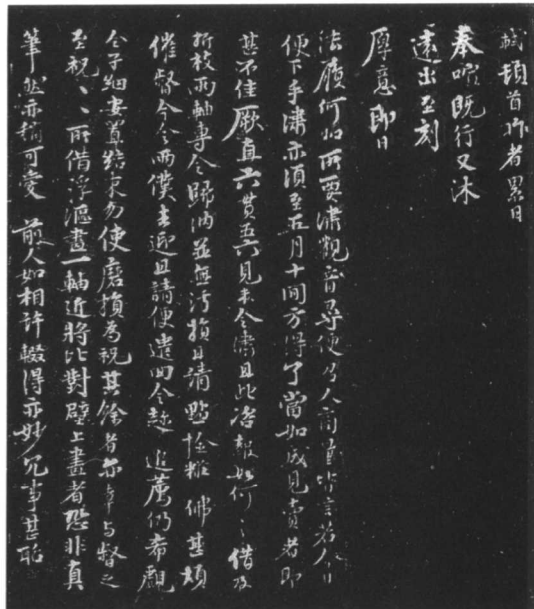 軾頓首昨者累日
奉喧既行又沐
遠出至刻
厚意即日
法履何如所要繡觀音尋便召人商量皆言若今日
便下手繡亦須至五月十間方得了當如成見賣者即
甚不佳厥直六貫五六見未令繡且此咨報如何〻借及
折枝兩軸專令歸納並無污損且請點檢粧佛甚煩
催督今令兩僕去迎且請便遣回令趂追薦仍希覷
令子細安簟結束勿使磨損為祝其餘者亦幸與督之
至祝〻〻所借浮漚畫一軸近將比對壁上畫者恐非真
筆然亦頗可愛 前人如相許輟得亦妙冗事甚聒